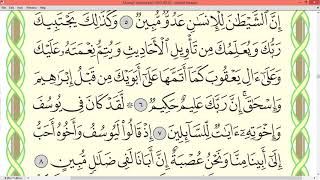 إِنَّ ٱلشَّيْطَٰنَ لِلْإِنسَٰنِ عَدُوٌّ مُّبِينٌ ۝٥ وَكَذَٰلِكَ يَجْتَبِيكَ
رَبُّكَ وَيُعَلِّمُكَ مِن تَأْوِيلِ ٱلْأَحَادِيثِ وَيُتِمُّ نِعْمَتَهُۥ عَلَيْكَ
وَعَلَىٰٓ ءَالِ يَعْقُوبَ كَمَآ أَتَمَّهَا عَلَىٰٓ أَبَوَيْكَ مِن قَبْلُ إِبْرَٰهِيمَ
وَإِسْحَٰقَ ۚ إِنَّ رَبَّكَ عَلِيمٌ حَكِيمٌ ۝٦ ۞ لَّقَدْ كَانَ فِى يُوسُفَ
وَإِخْوَتِهِۦٓ ءَايَٰتٌ لِّلسَّآئِلِينَ ۝٧ إِذْ قَالُوا۟ لَيُوسُفُ وَأَخُوهُ أَحَبُّ
إِلَىٰٓ أَبِينَا مِنَّا وَنَحْنُ عُصْبَةٌ إِنَّ أَبَانَا لَفِى ضَلَٰلٍ مُّبِينٍ ۝٨